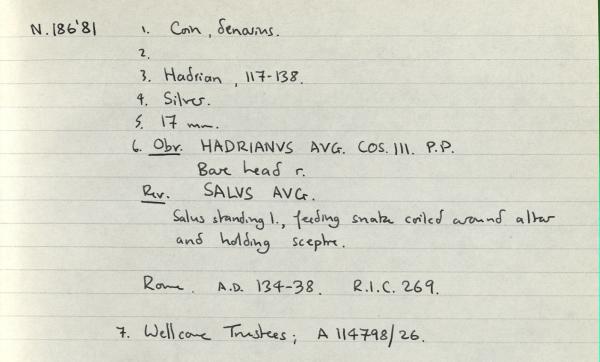 N.186'81 1. Coin, denarius.
2.
3. Hadrian, 117-138.
4. Silver.
5. 17 mm.
6. Obv. HADRIANVS AVG. COS. III. P.P.
Bare head r.
Rev. SALVS AVG.
Salus standing l., feeding snake coiled around altar
and holding sceptre.
Rome. A.D. 134-38. R.I.C. 269.
7. Wellcome Trustees; A 114798/26.